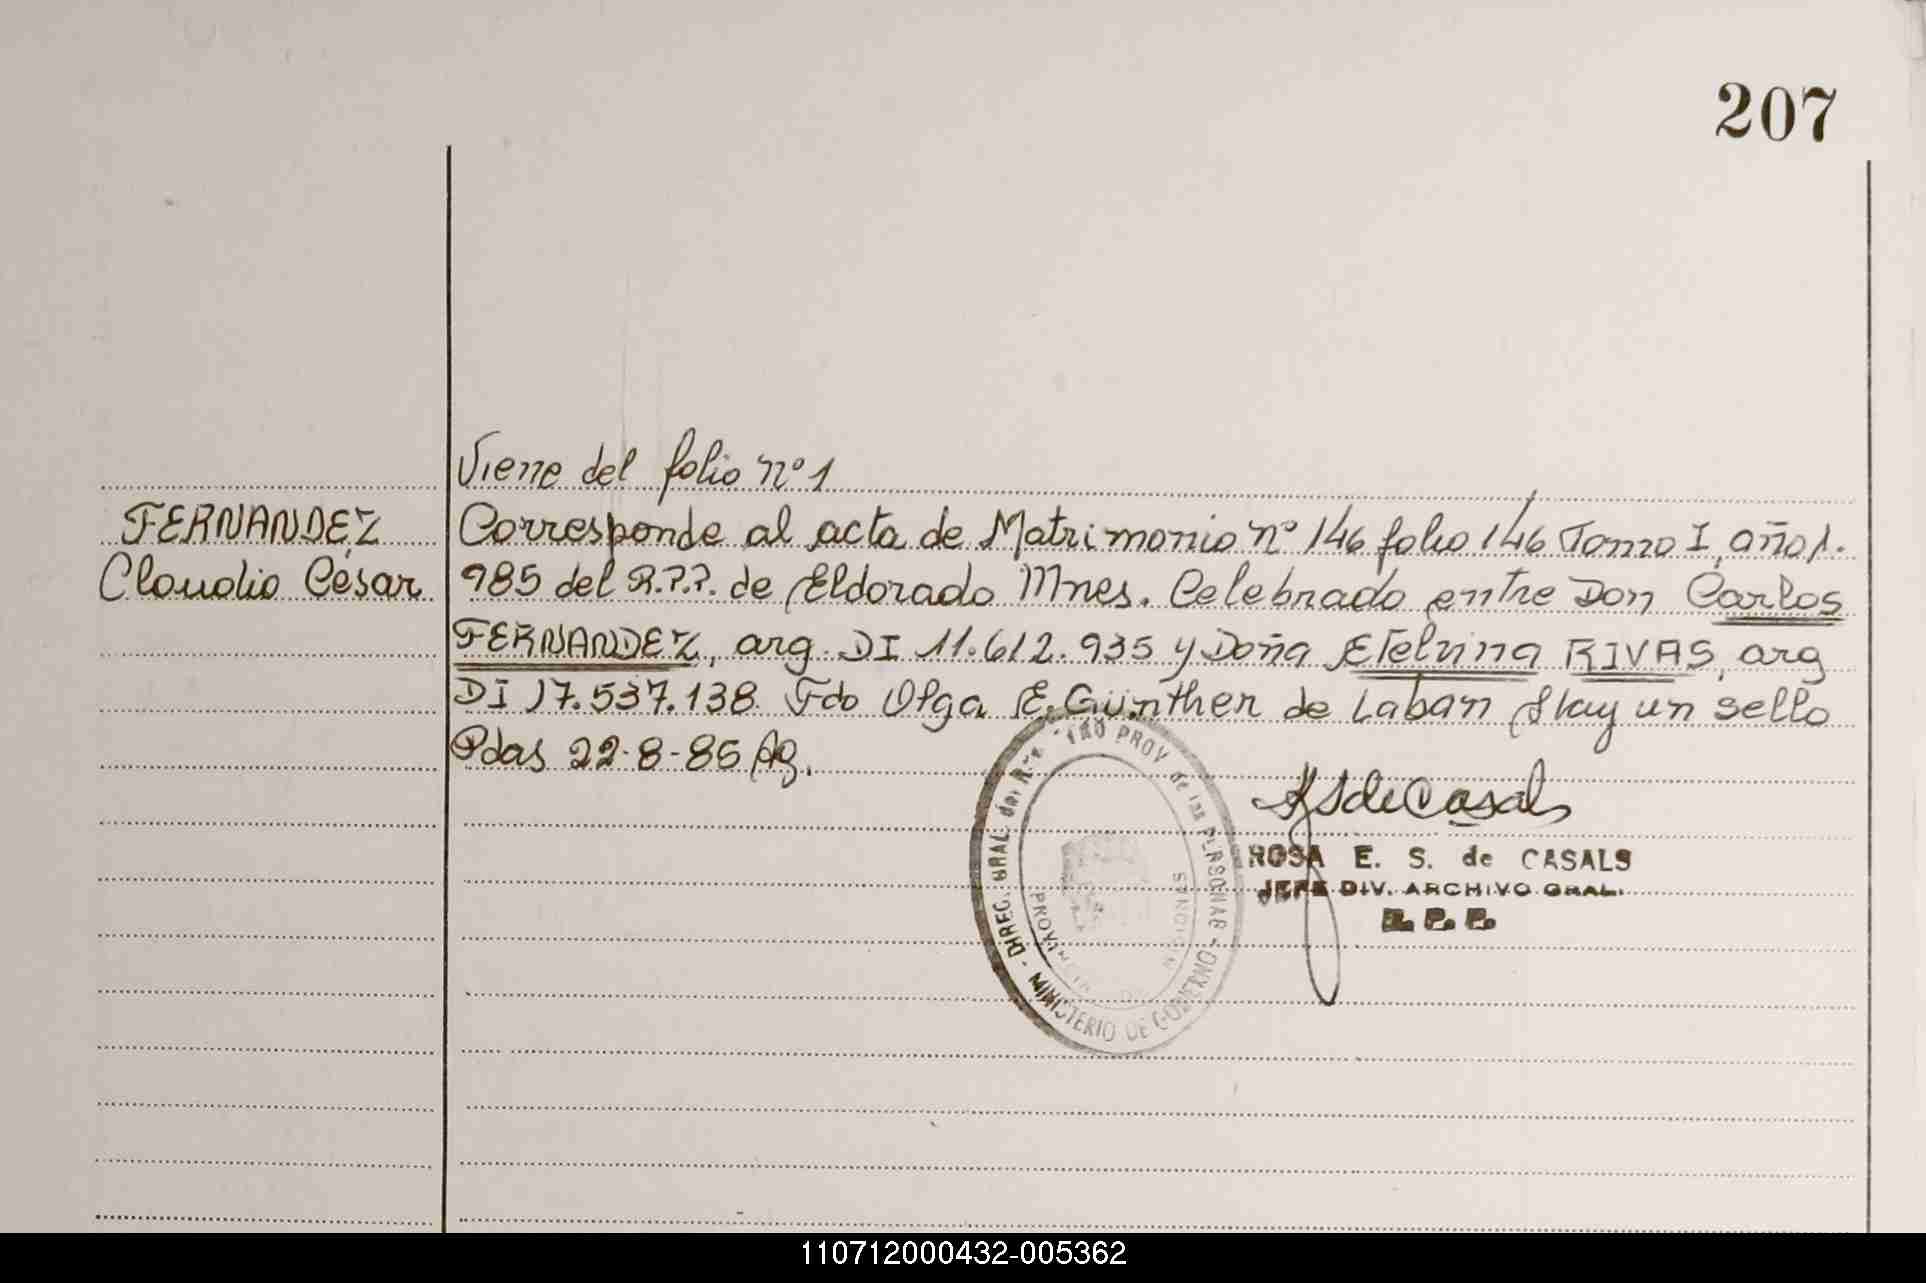 207
Viene del folio nº 1
FERNANDEZ
Claudio César
Corresponde al acta de Matrimonio nº 146 folio 146 Tomo I, año 1.
985 del R.P.P. de Eldorado Mnes. Celebrado entre Don Carlos
FERNANDEZ, arg. DI 11.612.935 y Doña Etelvina RIVAS, arg
DI 17.537.138. Fdo Olga E. Günther de Laban Hay un sello
Pdas 22-8-85
ROSA E. S. de CASALS
JEFE DIV. ARCHIVO GRAL.
R. P. P.
DIREC. GRAL. del PROV de las PERSONAS - MINISTERIO DE GOBIERNO -
PROVINCIA DE MISIONES
110712000432-005362